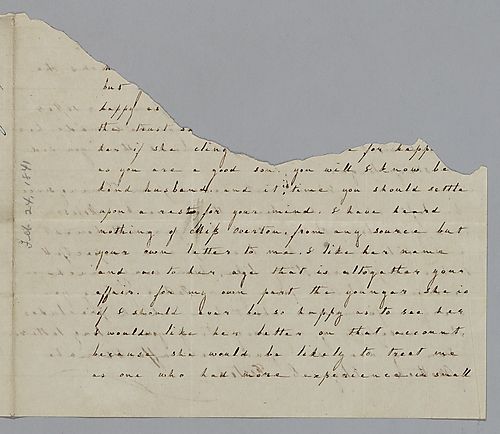 but
happy as
the trust sa
her if she cling e for happ
as you are a good son. you will I know be
kind husband. and it is time you should settle
upon a rest for your mind. I have heard
nothing of Miss Overton, from any source but
your own letter to me. I like her name
and as to her age that is altogather your
affair. for my own part the younger she is
if I should ever be so happy as to see her
I would like her better on that account,
because she would be likely to treat me
as one who had more experience in small
Feb 24, 1841